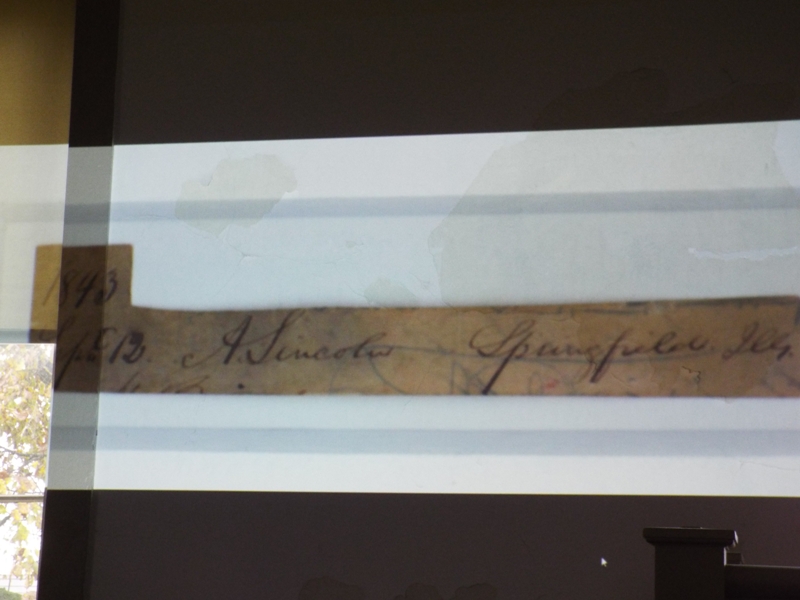 1843
Sept 12. A. Lincoln Springfield. Ills.